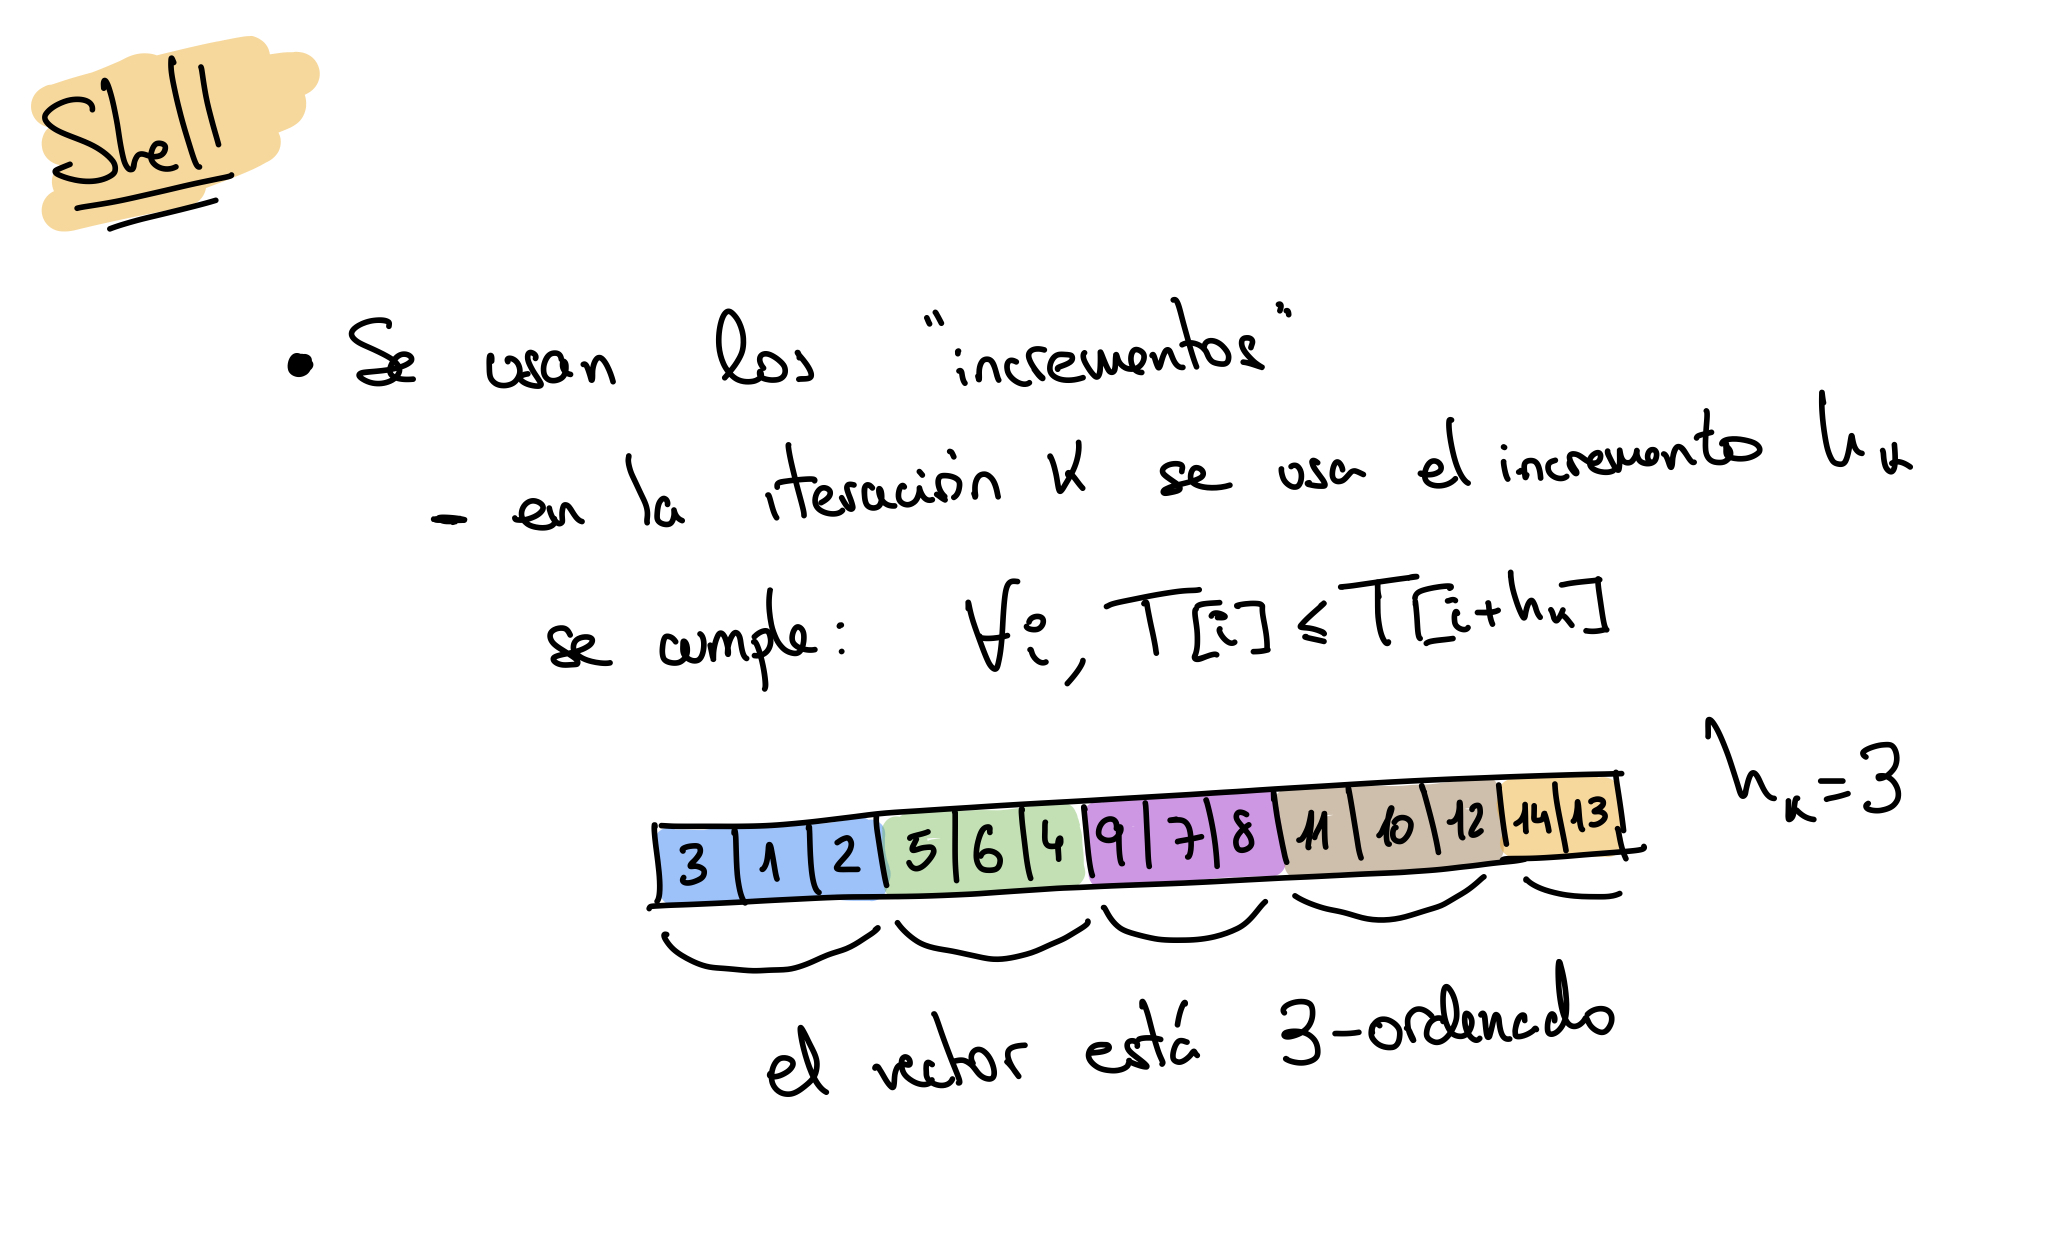 Shell
• Se usan los "incrementos"
- en la iteración K se usa el incremento hₖ
se cumple: ∀i, T[i] ≤ T[i+hₖ]
hₖ=3
3 1 2 5 6 4 9 7 8 11 10 12 14 13
el vector está 3-ordenado